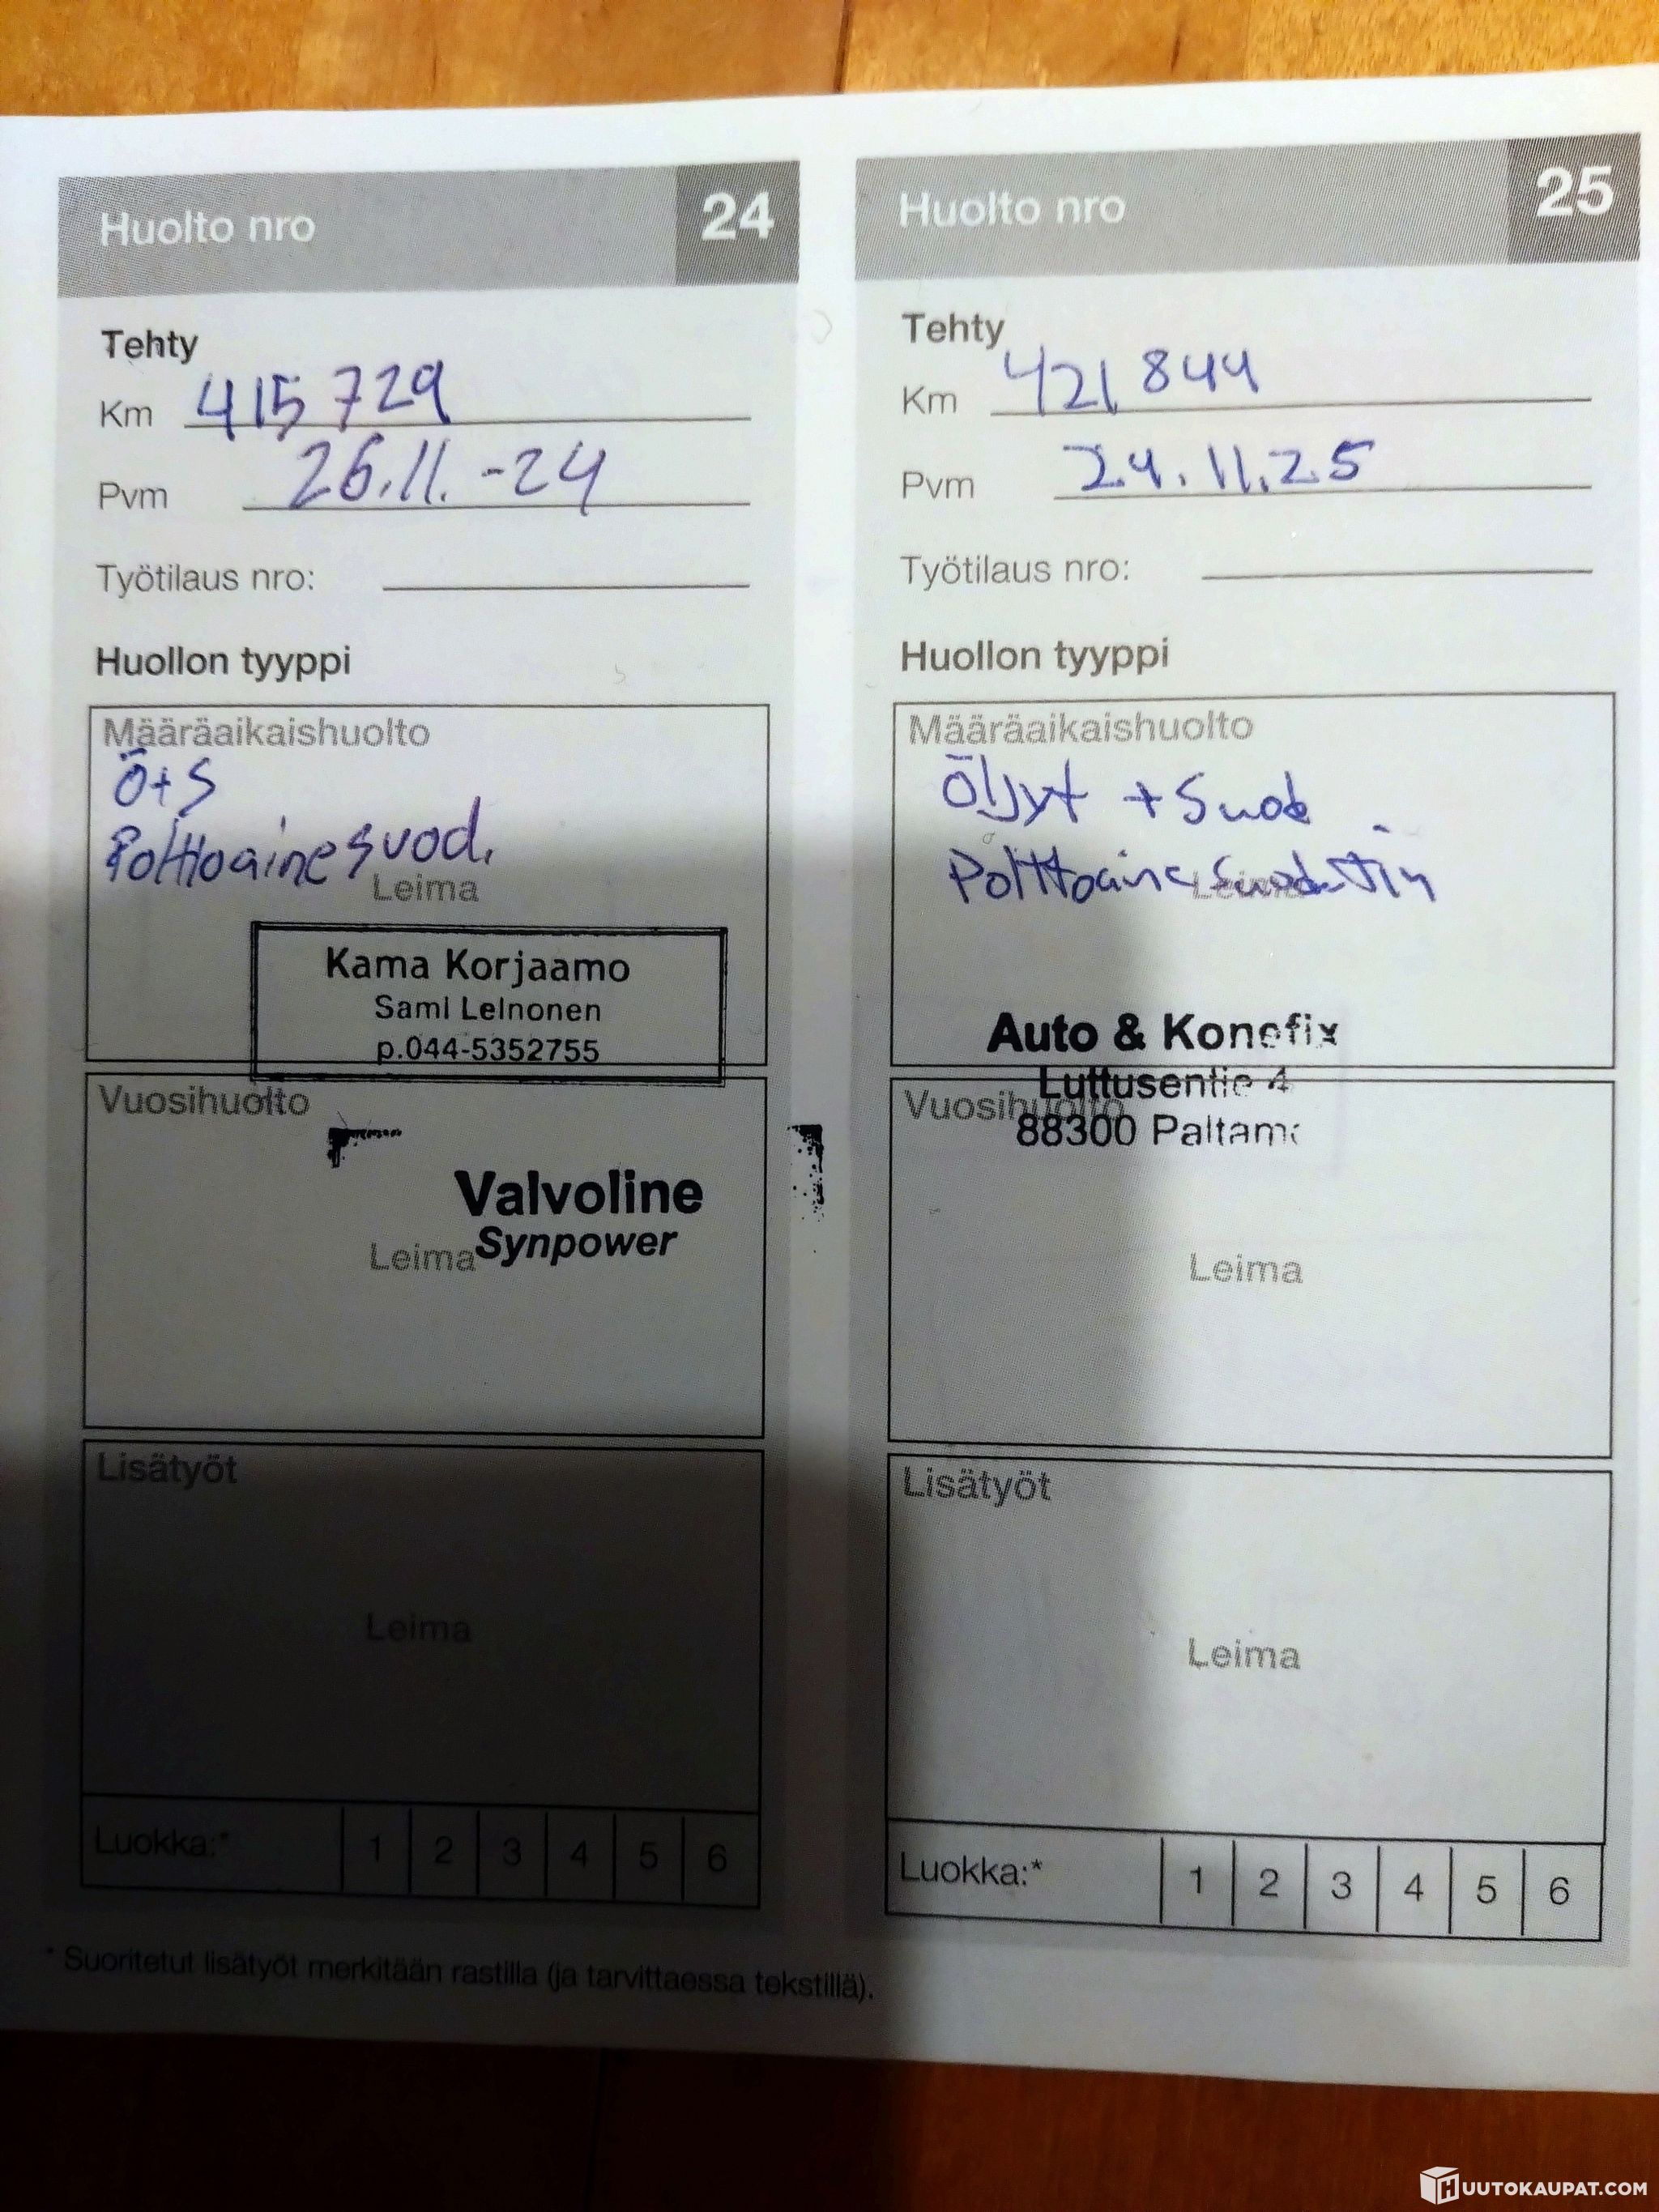 Huolto nro 24
Tehty
Km 415 729
Pvm 26.11.-24
Työtilaus nro:
Huollon tyyppi
Määräaikaishuolto
Ö+S
Polttoainesuod.
Leima
Kama Korjaamo
Sami Leinonen
p.044-5352755
Vuosihuolto
Valvoline
Synpower
Leima
Lisätyöt
Leima
Luokka:* 1 2 3 4 5 6
* Suoritetut lisätyöt merkitään rastilla (ja tarvittaessa tekstillä).
Huolto nro 25
Tehty
Km 421 844
Pvm 24.11.25
Työtilaus nro:
Huollon tyyppi
Määräaikaishuolto
Öljyt + Suod
Polttoainesuodatin
Leima
Auto & Konefix
Luttusentie 4
88300 Paltamo
Vuosihuolto
Leima
Lisätyöt
Leima
Luokka:* 1 2 3 4 5 6
HUUTOKAUPAT.COM